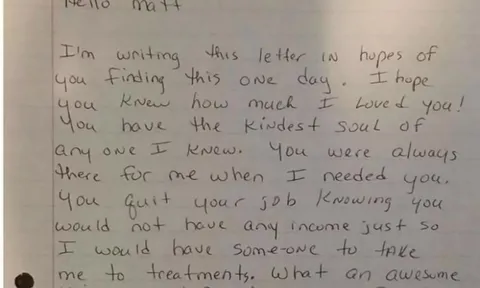 Hello Matt
I'm writing this letter in hopes of
you finding this one day. I hope
you knew how much I Loved you!
You have the kindest soul of
any one I knew. You were always
there for me when I needed you.
You quit your job knowing you
would not have any income just so
I would have some-one to take
me to treatments. What an awesome